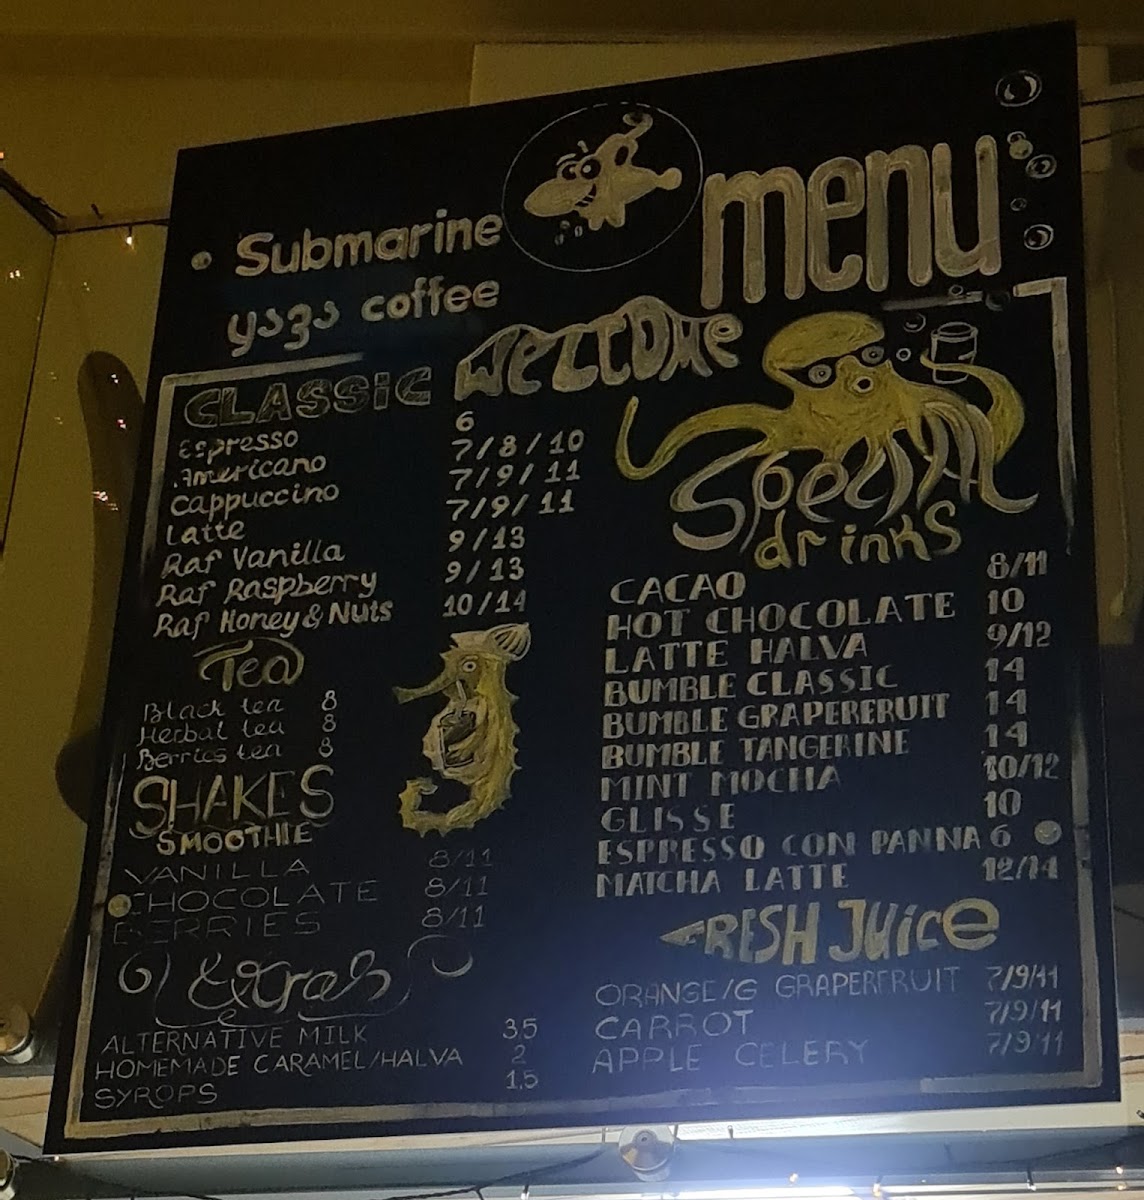 Submarine
ყავა coffee
menu
WELCOME
CLASSIC
Espresso 6
Americano 7/8/10
Cappuccino 7/9/11
Latte 7/9/11
Raf Vanilla 9/13
Raf Raspberry 9/13
Raf Honey & Nuts 10/14
Tea
Black tea 8
Herbal tea 8
Berries tea 8
SHAKES
SMOOTHIE
VANILLA 8/11
CHOCOLATE 8/11
BERRIES 8/11
Extras
ALTERNATIVE MILK 3,5
HOMEMADE CARAMEL/HALVA 2
SYROPS 1,5
Special
drinks
CACAO 8/11
HOT CHOCOLATE 10
LATTE HALVA 9/12
BUMBLE CLASSIC 14
BUMBLE GRAPERERUIT 14
BUMBLE TANGERINE 14
MINT MOCHA 10/12
GLISSE 10
ESPRESSO CON PANNA 6
MATCHA LATTE 12/14
FRESH JUICE
ORANGE/G GRAPERFRUIT 7/9/11
CARROT 7/9/11
APPLE CELERY 7/9/11